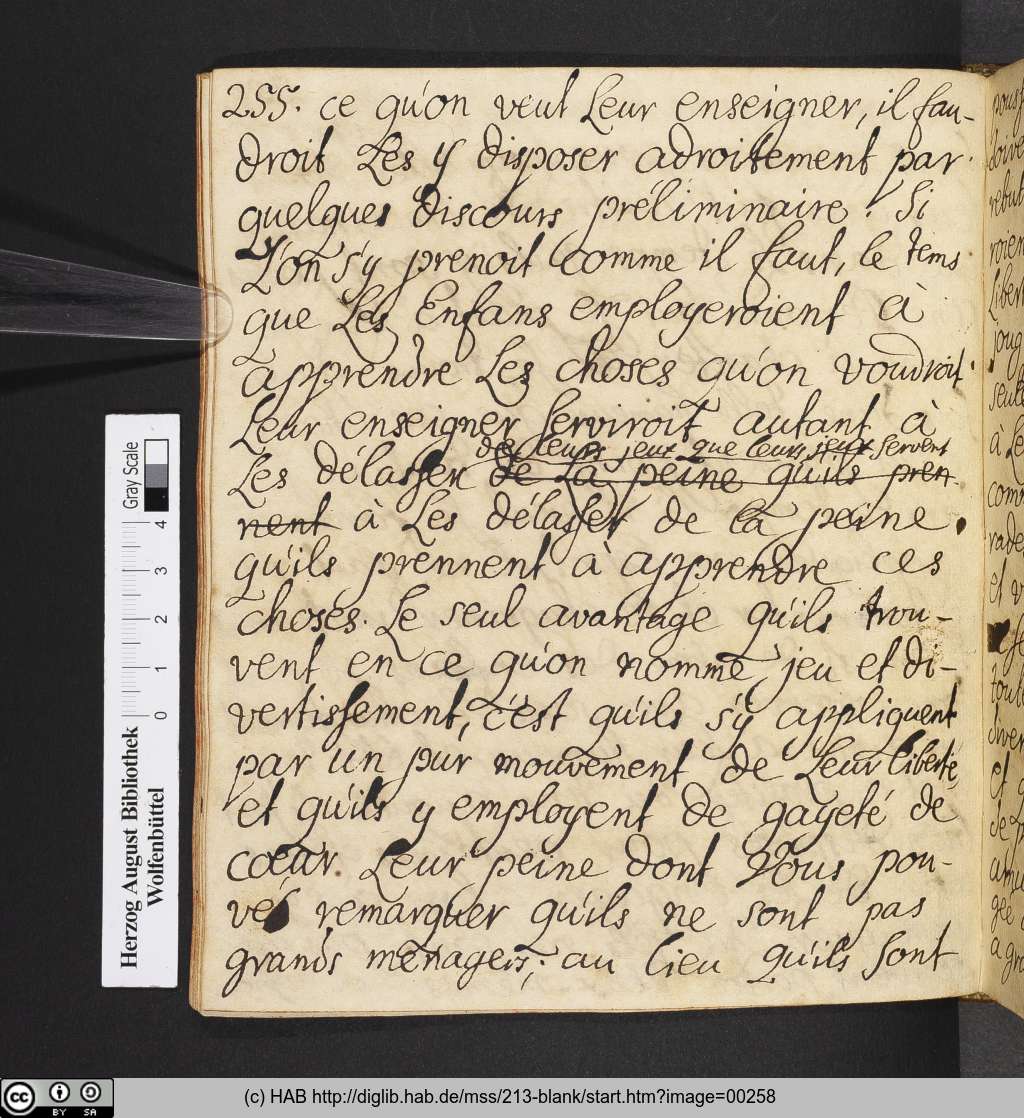 255. ce qu'on veut Leur enseigner, il fau-
droit Les y disposer adroitement par
quelques discours préliminaire. Si
L'on s'y prenoit comme il faut, le tems
que Les Enfans employeroient à
apprendre Les choses qu'on voudroit
Leur enseigner serviroit autant à
de leurs jeux que leurs jeux servent
Les délasser de La peine qu'ils pren
nent à Les délasser de la peine
qu'ils prennent à apprendre ces
choses. Le seul avantage qu'ils trou-
vent en ce qu'on nomme jeu et di-
vertissement, c'est qu'ils s'y appliquent
par un pur mouvement de Leur liberté,
et qu'ils y employent de gayeté de
cœur. Leur peine dont Vous pou-
vés remarquer qu'ils ne sont pas
grands ménagers; au lieu qu'ils sont
Herzog August Bibliothek
Wolfenbüttel
Gray Scale
0 1 2 3 4
cc BY SA
(c) HAB http://diglib.hab.de/mss/213-blank/start.htm?image=00258